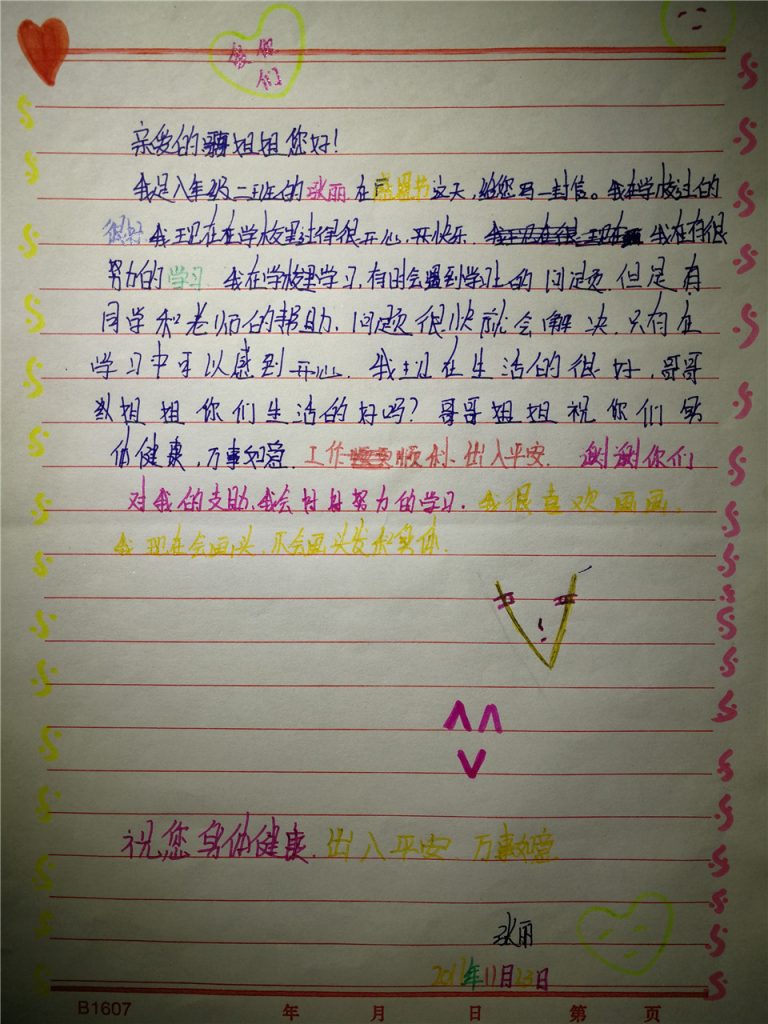 你们
亲爱的哥姐姐您好!
我是八年级二班的张丽.在感恩书这天,给您写一封信。我在学校过的
很好 我现在在学校里过得很开心,开快乐. 我在有很
努力的学习 我在学校里学习,有时会遇到学习上的问题.但是有
同学和老师的帮助.问题很快就会解决.只有在
学习中可以感到开心. 我现在生活的很好,哥哥
姐姐你们生活的好吗?哥哥姐姐祝你们身
体健康,万事如意.工作顺利.出入平安. 谢谢你们
对我的支助.我会好好努力的学习.我很喜欢画画,
我现在会画头,不会画头发和身体.
祝您身体健康.出入平安 万事如意.
张丽
2017年11月23日
B1607 年 月 日 第 页